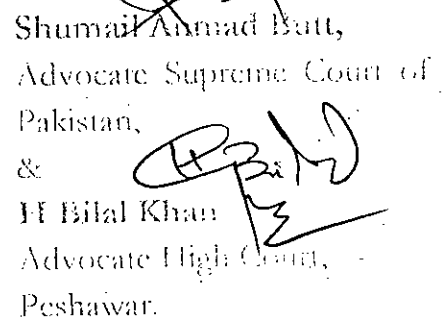 Shumail Ahmad Butt,
Advocate Supreme Court of
Pakistan,
&
H Bilal Khan
Advocate High Court,
Peshawar.